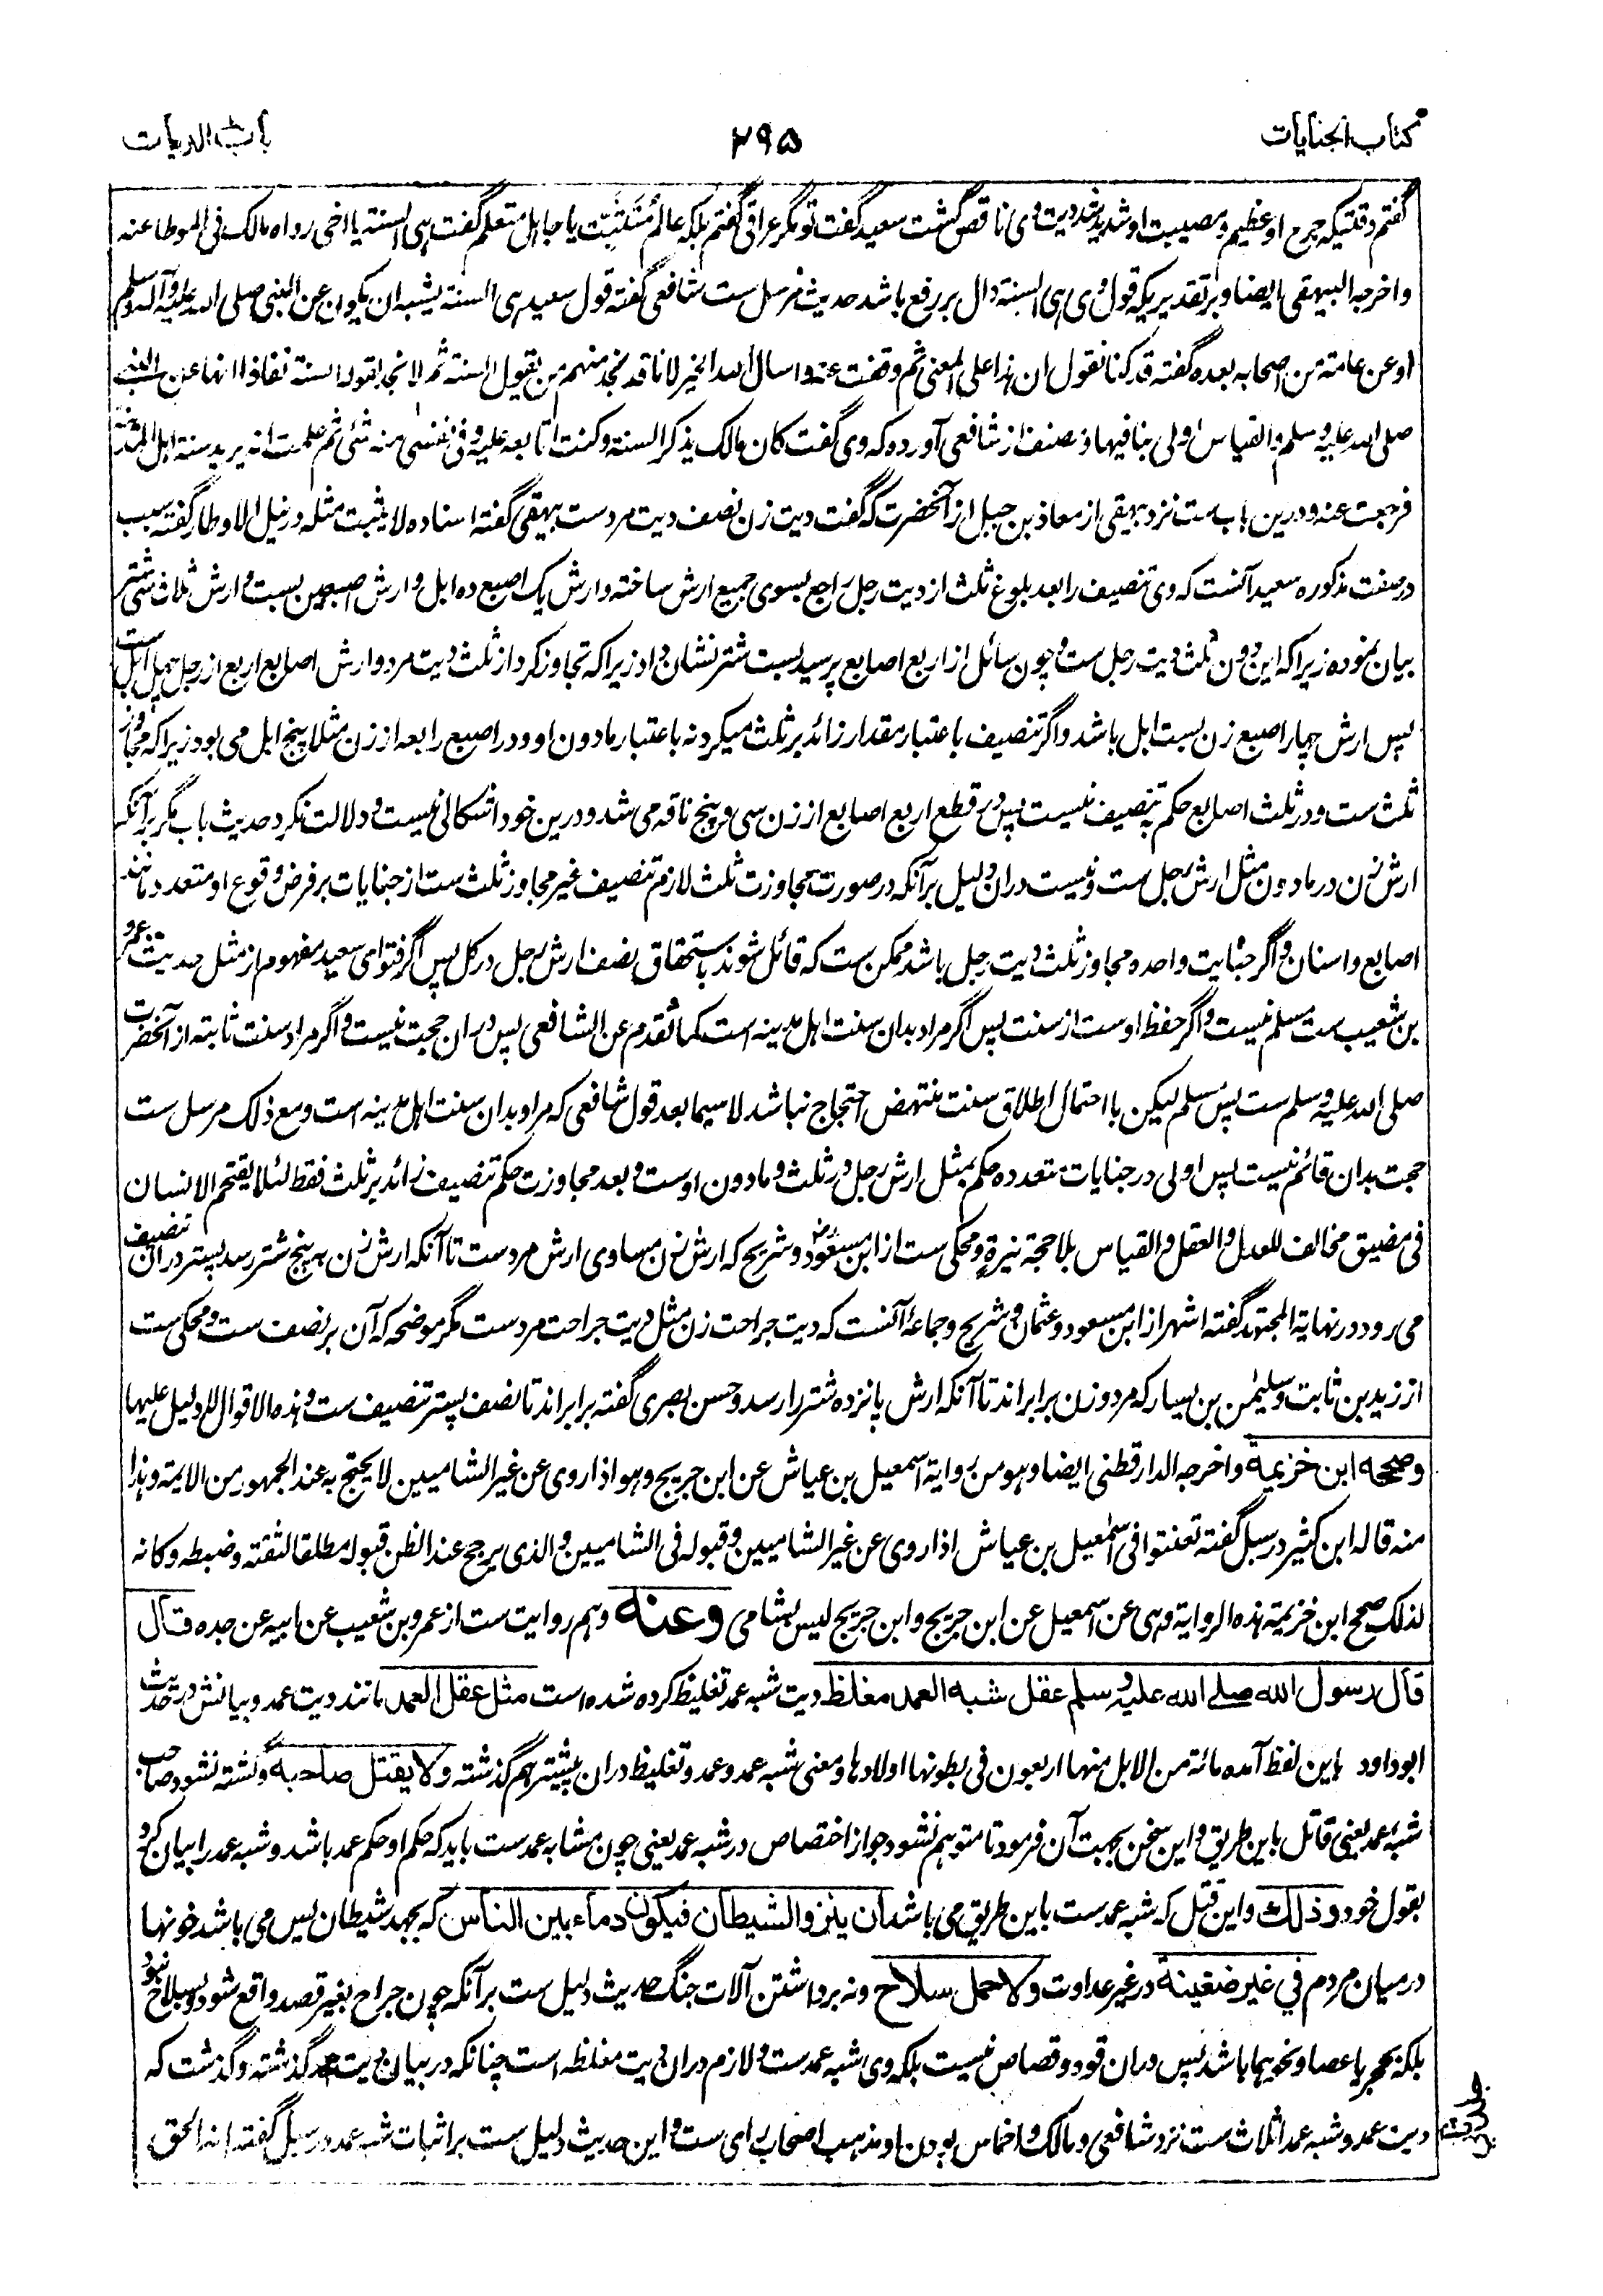 کتاب الجنایات
۲۹۵
باب الدیات
گفتم وقتیکه جرح او عظیم و مصیبت او شدید شد دیت وی ناقص گشت سعید گفت تو مگر عراقی گفتم بلکه عالم متثبت یا جاهل متعلم گفت هی السنة یا اخی رواه مالک فی الموطا عنه
واخرجه البیهقی ایضا و بر تقدیریکه قول وی هی السنة دال بر رفع باشد حدیث مرسل ست شافعی گفته قول سعید هی السنة یشبه ان یکون عن النبی صلی الله علیه وآله وسلم
او عن عامة من اصحابه بعده گفته قد کنا نقول ان هذا علی المعنی ثم وقفت عنه واسال الله الخیر لانا قد نجد منهم من یقول السنة ثم لا نجد لقوله السنة نفاذا انها عن النبی
صلی الله علیه وسلم والقیاس اولی بنا فیها و مصنف از شافعی آورده که وی گفت کان مالک یذکر السنة وکنت اتابعه علیه وفی نفسی منه شئ ثم علمت انه یرید سنة اهل المدینة
فرجعت عنه و درین باب ست نزد بیهقی از معاذ بن جبل از آنحضرت که گفت دیت زن نصف دیت مرد ست بیهقی گفته اسناده لا یثبت مثله در نیل الاوطار گفته سبب
در صفت مذکوره سعید آنست که وی تنصیف را بعد بلوغ ثلث از دیت رجل راجع بسوی جمیع ارش ساخته و ارش یک اصبع ده ابل و ارش اصبعین بست و ارش ثلاث سی شتر
بیان نموده زیرا که این دون ثلث دیت رجل ست و چون سائل از اربع اصابع پرسید بست شتر نشان داد زیرا که تجاوز کرد از ثلث دیت مرد و ارش اصابع اربع از رجل چهل ابل ست
پس ارش چهار اصبع زن بست ابل باشد و اگر تنصیف باعتبار مقدار زائد بر ثلث میکرد نه باعتبار مادون او در اصبع رابعه از زن مثلا پنج ابل می بود زیرا که مجاوز
ثلث ست و در ثلث اصابع حکم به تنصیف نیست پس در قطع اربع اصابع از زن سی و پنج ناقه می شد و درین خود اشکالی نیست و دلالت نکرد حدیث باب مگر برآنکه
ارش زن در مادون مثل ارش رجل ست و نیست دران دلیل برآنکه در صورت مجاوزت ثلث لازم تنصیف غیر مجاوز ثلث ست از جنایات بر فرض وقوع او متعدد مانند
اصابع و اسنان و اگر جنایت واحده مجاوز ثلث دیت رجل باشد ممکن ست که قائل شوند باستحقاق نصف ارش رجل در کل پس اگر فتوای سعید مفهوم از مثل حدیث عمرو
بن شعیب ست مسلم نیست و اگر حفظ اوست از سنت پس اگر مراد بدان سنت اهل مدینه است کما تقدم عن الشافعی پس دران حجت نیست و اگر مراد سنت ثابته از آنحضرت
صلی الله علیه وسلم ست پس مسلم لیکن با احتمال اطلاق سنت منتهض احتجاج نباشد لاسیما بعد قول شافعی که مراد بدان سنت اهل مدینه است و مع ذلک مرسل ست
حجت بدان قائم نیست پس اولی در جنایات متعدده حکم بمثل ارش رجل در ثلث و مادون اوست و بعد مجاوزت حکم تنصیف زائد بر ثلث فقط لئلا یقتحم الانسان
فی مضیق مخالف للعدل والعقل والقیاس بلا حجة نیرة و محکی ست از ابن مسعود رض و شریح که ارش زن مساوی ارش مرد ست تا آنکه ارش زن به پنج شتر رسد پستر دران تنصیف
می رود در نهایة المجتهد گفته اشهر از ابن مسعود و عثمان و شریح و جماعه آنست که دیت جراحت زن مثل دیت جراحت مرد ست مگر موضحه که آن بر نصف ست و محکی ست
از زید بن ثابت و سلیمٰن بن یسار که مرد و زن برابر اند تا آنکه ارش پانزده شتر را رسد و حسن بصری گفته برابر اند تا نصف پستر تنصیف ست و هذه الاقوال لا دلیل علیها
وصححه ابن خزیمة واخرجه الدارقطنی ایضا وهو من روایة اسمعیل بن عیاش عن ابن جریج وهو اذا روی عن غیر الشامیین لا یحتج به عند الجمهور من الایمة وهذا
منه قاله ابن کثیر در سبل گفته تعنتوا فی اسمٰعیل بن عیاش اذا روی عن غیر الشامیین وقبوله فی الشامیین والذی یرجح عند الظن قبوله مطلقا لثقته وضبطه وکانه
لذلک صحح ابن خزیمة هذه الروایة وهی عن اسمعیل عن ابن جریج وابن جریج لیس بشامی وعنه وهم روایت ست از عمرو بن شعیب عن ابیه عن جده قال
قال رسول الله صلی الله علیه وسلم عقل شبه العمد مغلظ دیت شبه عمد تغلیظ کرده شده است مثل عقل العمد مانند دیت عمد و بیانش در حدیث
ابوداود باین لفظ آمده مائة من الابل منها اربعون فی بطونها اولادها و معنی شبه عمد و عمد و تغلیظ دران پیشتر هم گذشته ولا یقتل صاحبه و کشته نشود صاحب
شبه عمد یعنی قاتل باین طریق و این سخن بجهت آن فرمود تا متوهم نشود جواز اختصاص در شبه عمد یعنی چون مشابه عمد ست باید که حکم او حکم عمد باشد و شبه عمد را بیان کرد
بقول خود وذلک و این قتل که شبه عمد ست باین طریق می باشد ان ینزو الشیطان فیکون دماء بین الناس که بجهد شیطان پس می باشد خونها
در میان مردم فی غیر ضغینة در غیر عداوت ولا حمل سلاح و نه برداشتن آلات جنگ حدیث دلیل ست برآنکه چون جراح بغیر قصد واقع شود و بسلاح نبود
بلکه بحجر یا عصا و نحو هما باشد پس دران قود و قصاص نیست بلکه وی شبه عمد ست و لازم دران دیت مغلظه است چنانکه در بیان دیت عمد گذشته و گذشت که
دیت عمد و شبه عمد اثلاث ست نزد شافعی و مالک و اخماس بودن او مذهب اصحاب رای ست و این حدیث دلیل ست بر اثبات شبه عمد در سبل گفته انه الحق